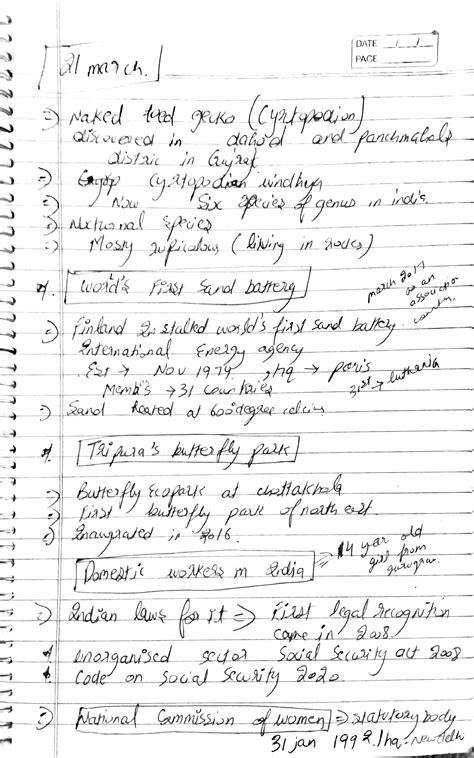 DATE / /
PAGE
21 march.
=) Naked toed gecko (Cyrtopodion)
discovered in dahod and panchmahals
distric in Gujrat
=) Cyrtopodian vindhya
=) Now Six species of genus in india.
=) Nocturnal species
=) Mosty rupicolous (living in rocks)
*. World's First Sand battery
march 2017 as an association country
=) Finland Installed world's first sand battery.
International Energy agency
Est → Nov 1974, hq → paris
Memb's → 31 countries 31st → luthania
=) Sand heated at 600 degree celcius
*. Tripura's butterfly park
=) Butterfly Ecopark at chottakhola
=) First butterfly park of north east
=) Inaugrated in 2016.
Domestic workers in India => 14 year old girl from gurugram
=) Indian laws for it => First legal recognition
came in 2008.
* unorganised sector Social Security act 2008
* Code on Social Security 2020.
=) National Commission of women => statutory body
31 jan 1992. hq - New Delhi